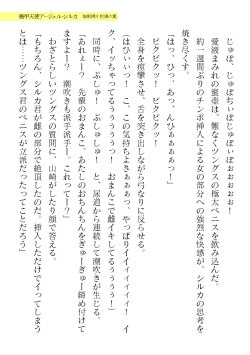 じゅぽ、じゅぽちぃぽじゅぽぉぉぉぉぉ！
愛液まみれの蜜壺は、難なくツングスの極太ペニスを飲み込んだ。
約一週間ぶりのチンポ挿入による女の部分への強烈な快感が、シルカの思考を
焼き尽くす。
「はっ、ひっ、あっ、んひぁぁぁぁっ！」
ビクビクッ！　ビクビクッ！
全身を痙攣させ、舌を突き出しながら弓なりに反らせる。
「はひぃぃっ！　こ、この気持ちよさぁぁぁっ、やっぱりイイイイイイイ！　イ
ク、イッちゃってるぅぅぅぅぅ！　おまんこで雌イキしてるぅぅぅぅ！」
同時に、ぷしゅ！　ぷしゅ！　と尿道から連続して潮吹きが生じる。
「あれぇー？　先輩のおまんこ、あたしのおちんちんをぎゅーぎゅー締め付けて
ますよー？　潮吹きも派手派手ー、これってー？」
わざとらしいツングスの質問に、山崎がしたり顔で答える。
「もちろん、シルカ君が雌の部分で絶頂したのだ。挿入しただけでイってしまう
とは……ツングス君のペニスが立派だったってことだろう」